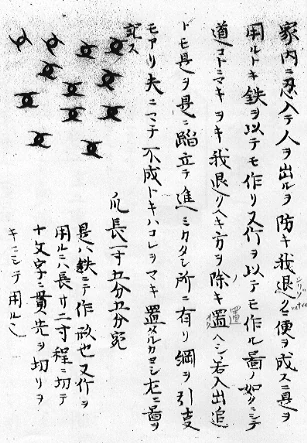 家内ニ忍入テ人ヲ出ルヲ防キ我退ノ便ヲ成スニ是ヲ
用ルトキ鉄ヲ以テモ作リ又竹ヲ以テモ作ル圖ノ如クニシテ
道コトニマキヲキ我退クヘキ方ヲ除キ置ヘシ若入出追
トモ是ヲ是ニ踏立テ進ミカタシ所ニ有リ綱ヲ引
モアリ夫ニマテ不成トキハコレヲマキ置ヘルカヨシ左ニ圖ヲ
記ス
爪長一寸五分五分宛
是ハ鉄ニテ作故也又竹ヲ
用ルニハ長サ二寸程ニ切テ
十文字ニ貫先ヲ切リヲ
キニシテ用ル